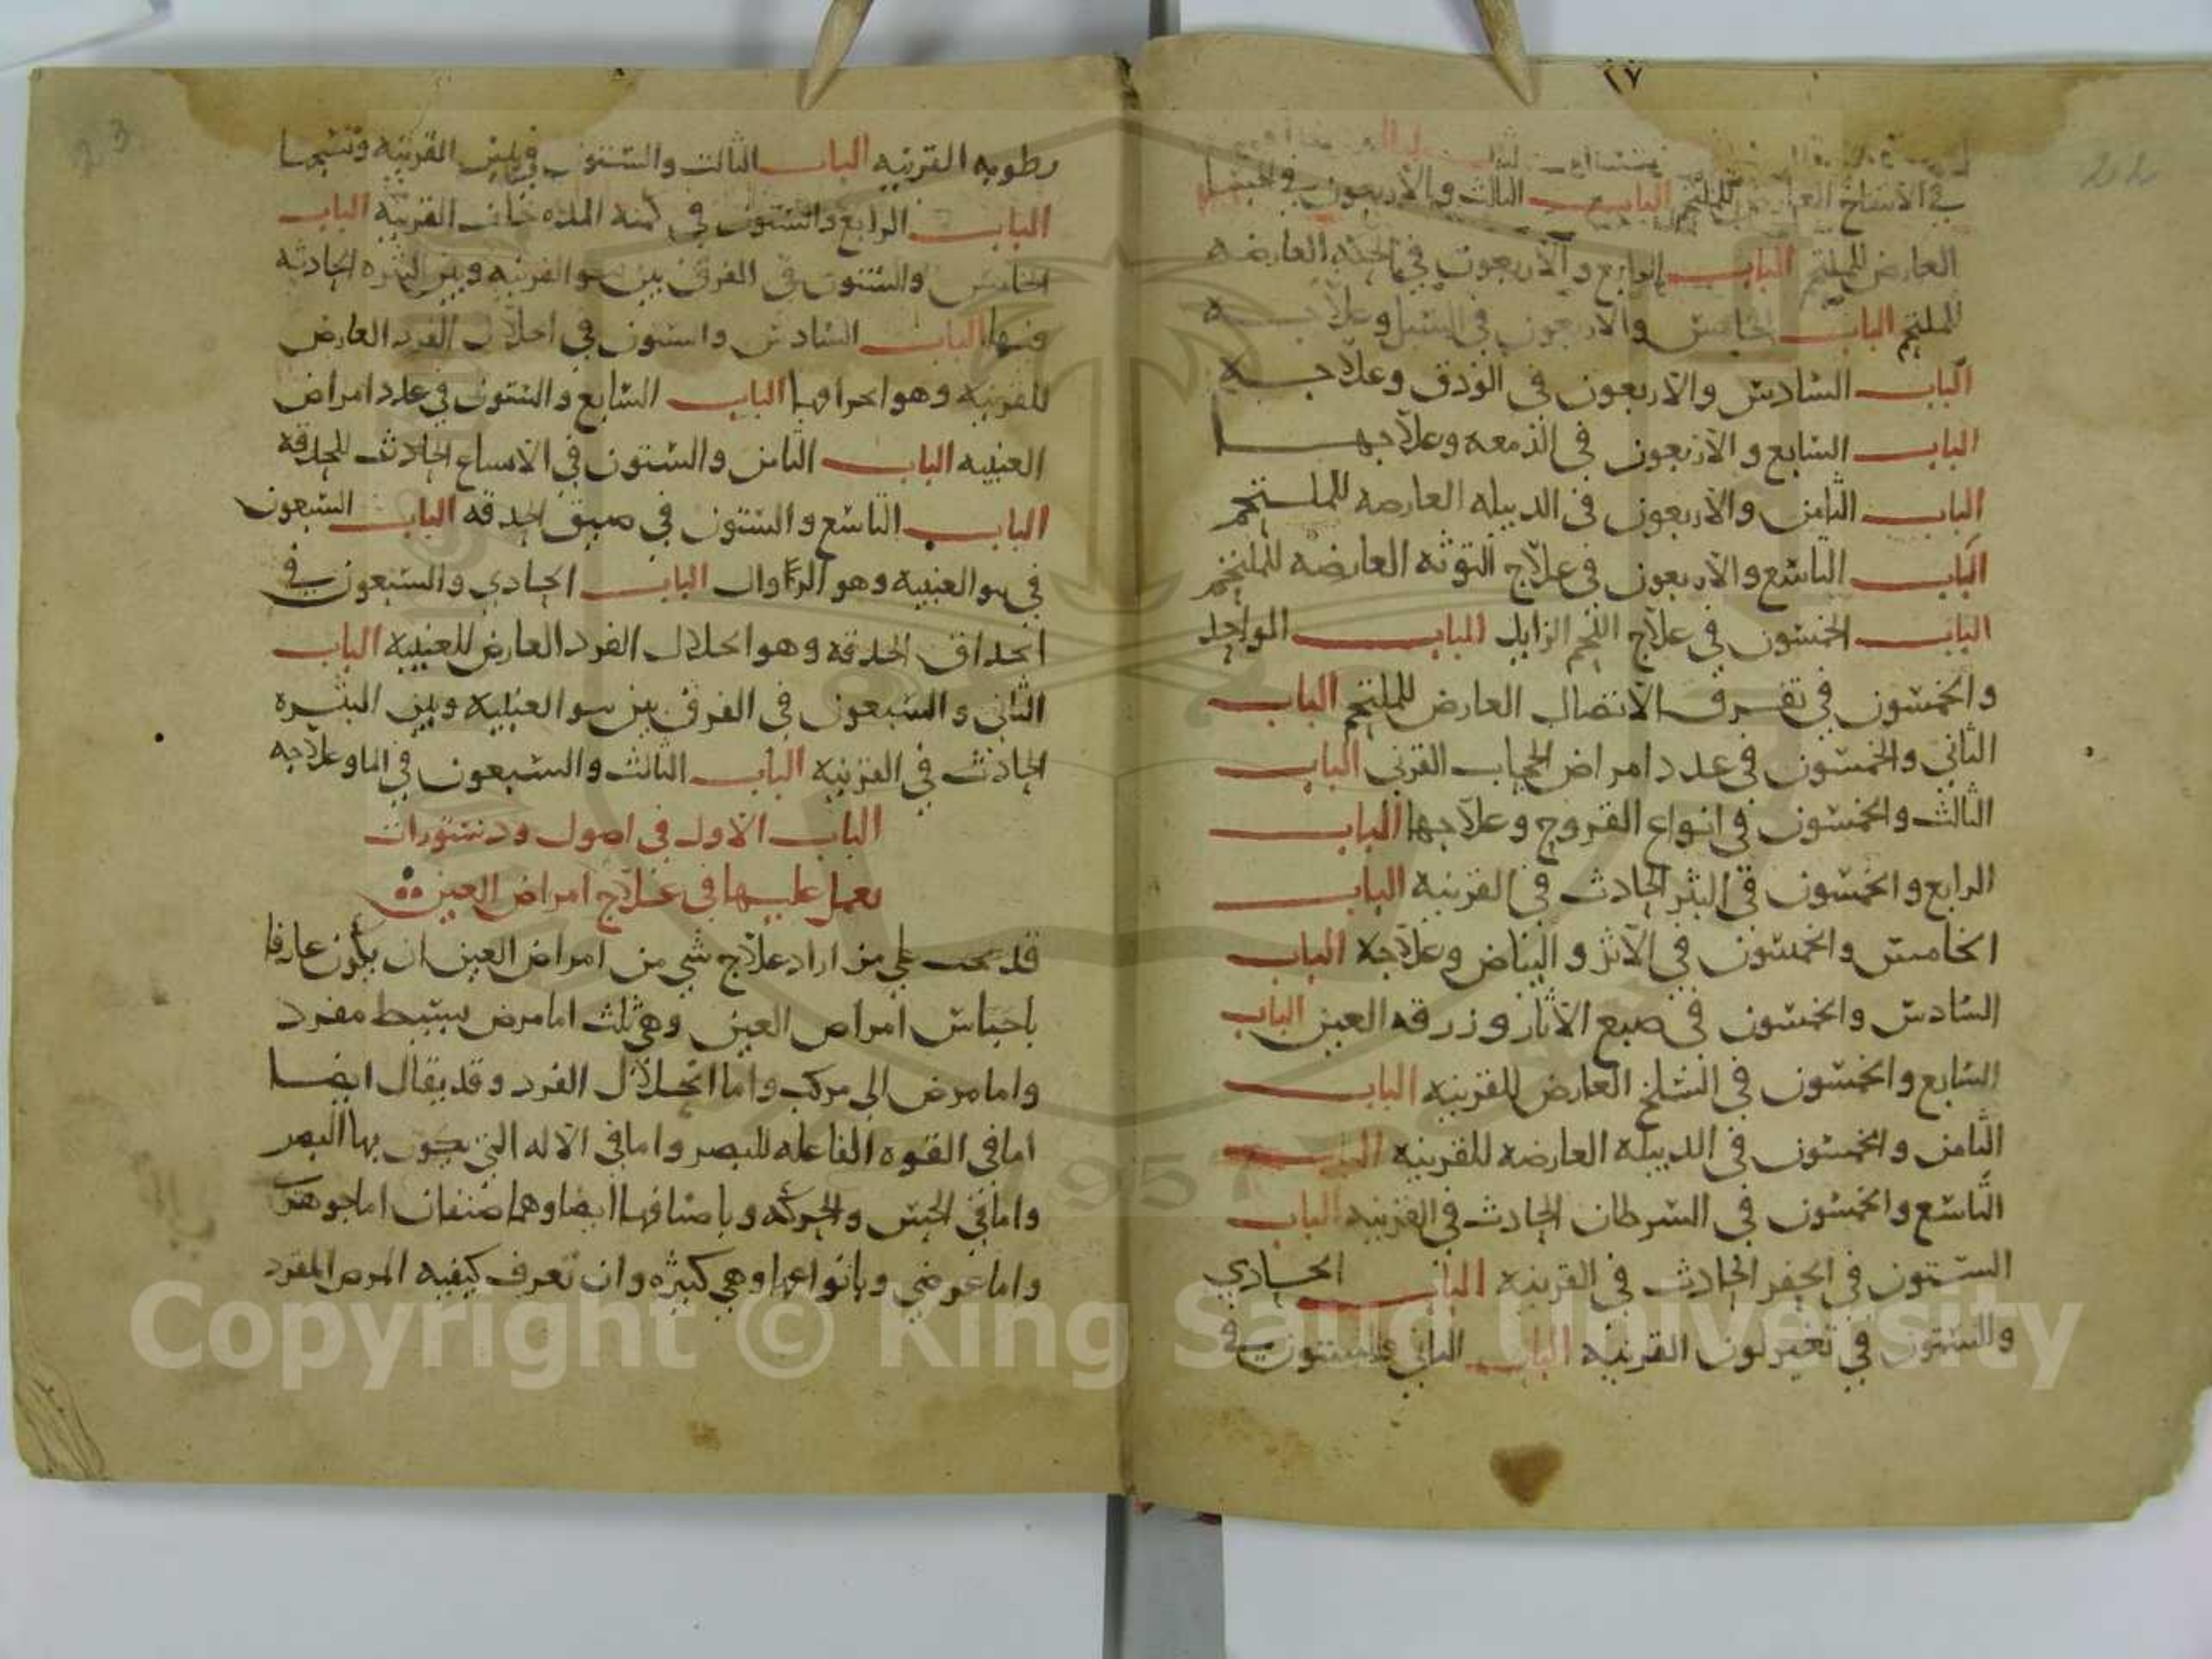 ١٧
22
في الانتفاخ العارض للملتحم الباب الثالث والاربعون في الجسا
العارض للملتحم الباب الرابع والاربعون في الحكه العارضه
للملتحم الباب الخامس والاربعون في السبل وعلاجه
الباب السادس والاربعون في الودق وعلاجه
الباب السابع والاربعون في الدمعه وعلاجها
الباب الثامن والاربعون في الدبيله العارضه للملتحم
الباب التاسع والاربعون في علاج التوته العارضه للملتحم
الباب الخمسون في علاج اللحم الزايد الباب الواحد
والخمسون في تفرق الاتصال العارض للملتحم الباب
الثاني والخمسون في عدد امراض الحجاب القرني الباب
الثالث والخمسون في انواع القروح وعلاجها الباب
الرابع والخمسون في البثر الحادث في القرنيه الباب
الخامس والخمسون في الاثر والبياض وعلاجه الباب
السادس والخمسون في صبغ الاثار وزرقه العين الباب
السابع والخمسون في السلخ العارض للقرنيه الباب
الثامن والخمسون في الدبيله العارضه للقرنيه الباب
التاسع والخمسون في السرطان الحادث في القرنيه الباب
الستون في الحفر الحادث في القرنيه الباب الحادي
والستون في تغير لون القرنيه الباب الثاني والستون في
23
رطوبه القرنيه الباب الثالث والستون في يبس القرنيه وتشنجها
الباب الرابع والستون في كمنه المده خلف القرنيه الباب
الخامس والستون في الفرق بين نتو القرنيه وبين البثره الحادثه
فيها الباب السادس والستون في انحلال الفرد العارض
للقرنيه وهو انخراقها الباب السابع والستون في عدد امراض
العنبيه الباب الثامن والستون في الاتساع الحادث للحدقه
الباب التاسع والستون في ضيق الحدقه الباب السبعون
في نتو العنبيه وهو الزوال الباب الحادي والسبعون في
انخراق الحدقه وهو انحلال الفرد العارض للعنبيه الباب
الثاني والسبعون في الفرق بين نتو العنبيه وبين البثره
الحادث في القرنيه الباب الثالث والسبعون في الما وعلاجه
الباب الاول في اصول ودستورات
يعمل عليها في علاج امراض العين
قد يجب علي من اراد علاج شي من امراض العين ان يكون عارفا
باجناس امراض العين وهي ثلث اما مرض بسيط مفرد
واما مرض الي مركب واما انحلال الفرد وقد يقال ايضا
اما في القوه الفاعله للبصر واما في الاله التي يكون بها البصر
واما في الحس والحركه وباصنافها ايضا وهما صنفان اما جوهري
واما عرضي وبانواعها وهي كثيره وان تعرف كيفيه المرض المفرد
Copyright © King Saud University
1957